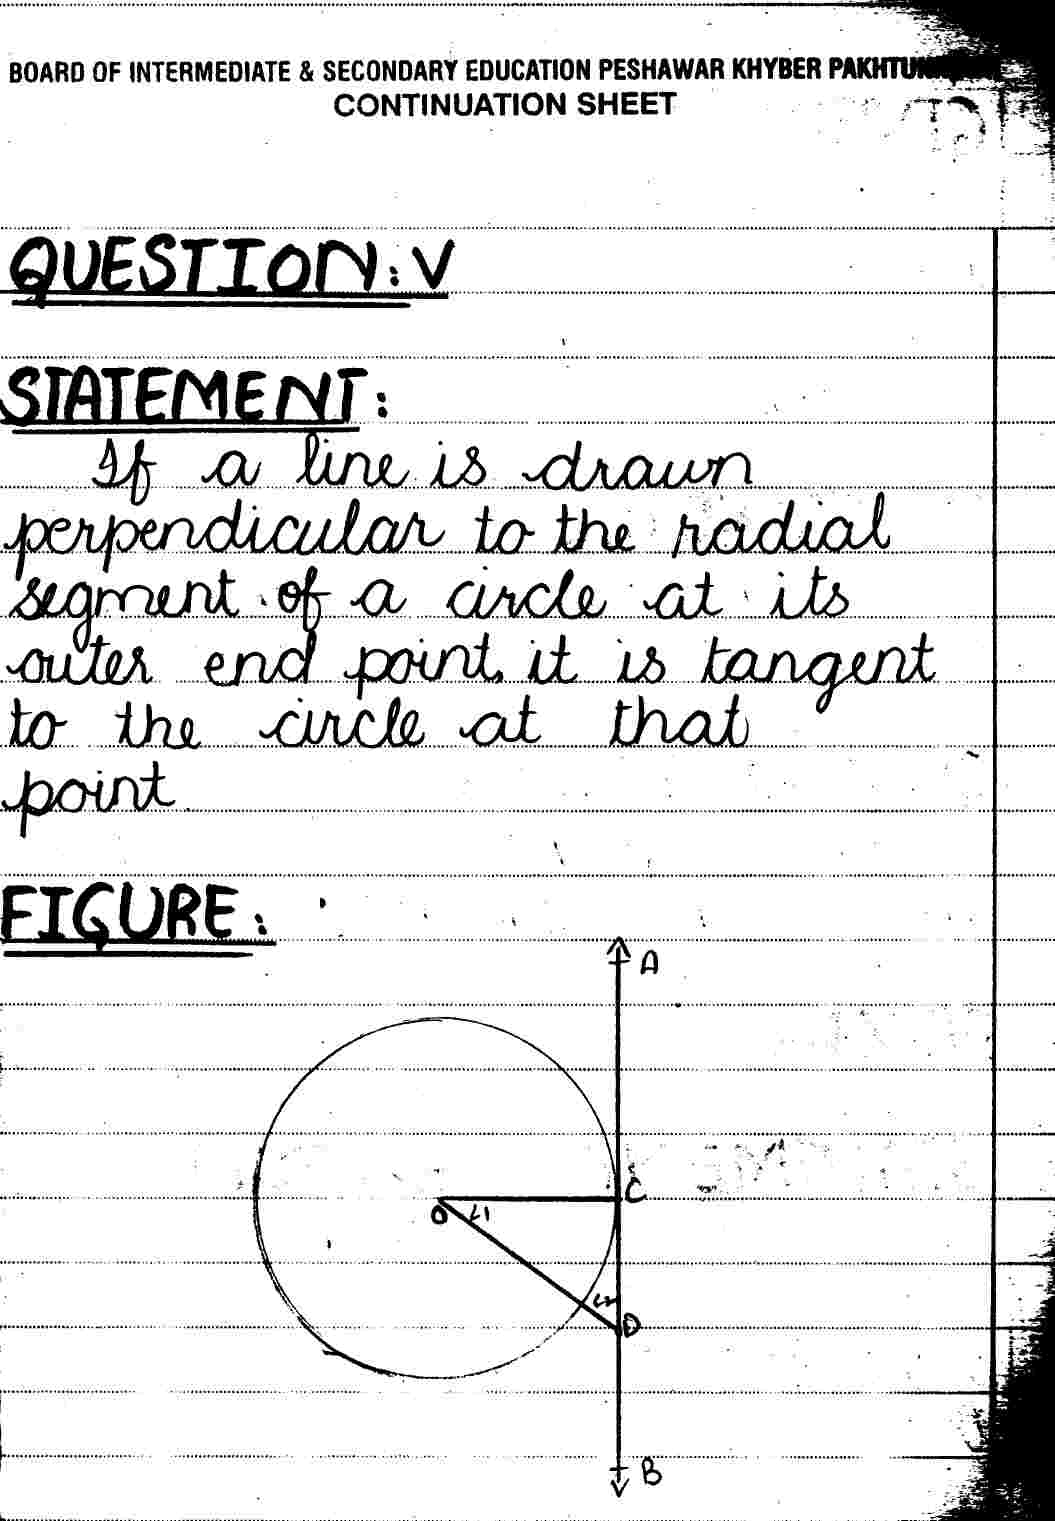 BOARD OF INTERMEDIATE & SECONDARY EDUCATION PESHAWAR KHYBER
CONTINUATION SHEET
QUESTION: V
STATEMENT:
If a line is drawn
perpendicular to the radial
segment of a circle at its
outer end point, it is tangent
to the circle at that
point
FIGURE:
A
C
O
∠1
∠2
D
B